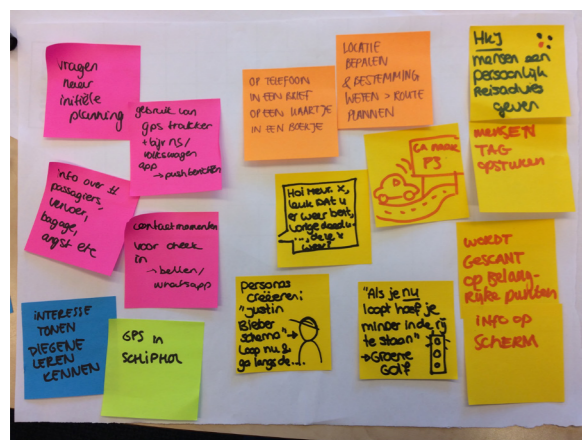 vragen
naar
initiële
planning
gebruik van
gps trakker
+ bijv ns/
volkswagen
app
→ pushberichten
info over #
passagiers,
vervoer,
bagage,
angst etc
contactmomenten
voor check
in
→ bellen/
whatsapp
INTERESSE
TONEN
DIEGENE
LEREN
KENNEN
GPS in
SCHIPHOL
OP TELEFOON
IN EEN BRIEF
OP EEN KAARTJE
IN EEN BOEKJE
LOCATIE
BEPALEN
& BESTEMMING
WETEN > ROUTE
PLANNEN
Hoi Mevr. X,
leuk dat u
er weer bent,
vorige keer
weer
CA NAAR
P3
Personas
creëeren:
"Justin
Bieber
schema" →
Loop nu &
ga langs de....
"Als je nu
loopt hoef je
minder in de rij
te staan"
→ Groene
Golf
HKJ
mensen een
persoonlijk
Reisadvies
geven
MENSEN
TAG
OPSTUREN
WORDT
GESCANT
OP BELANG-
RIJKE PUNTEN
INFO OP
SCHERM